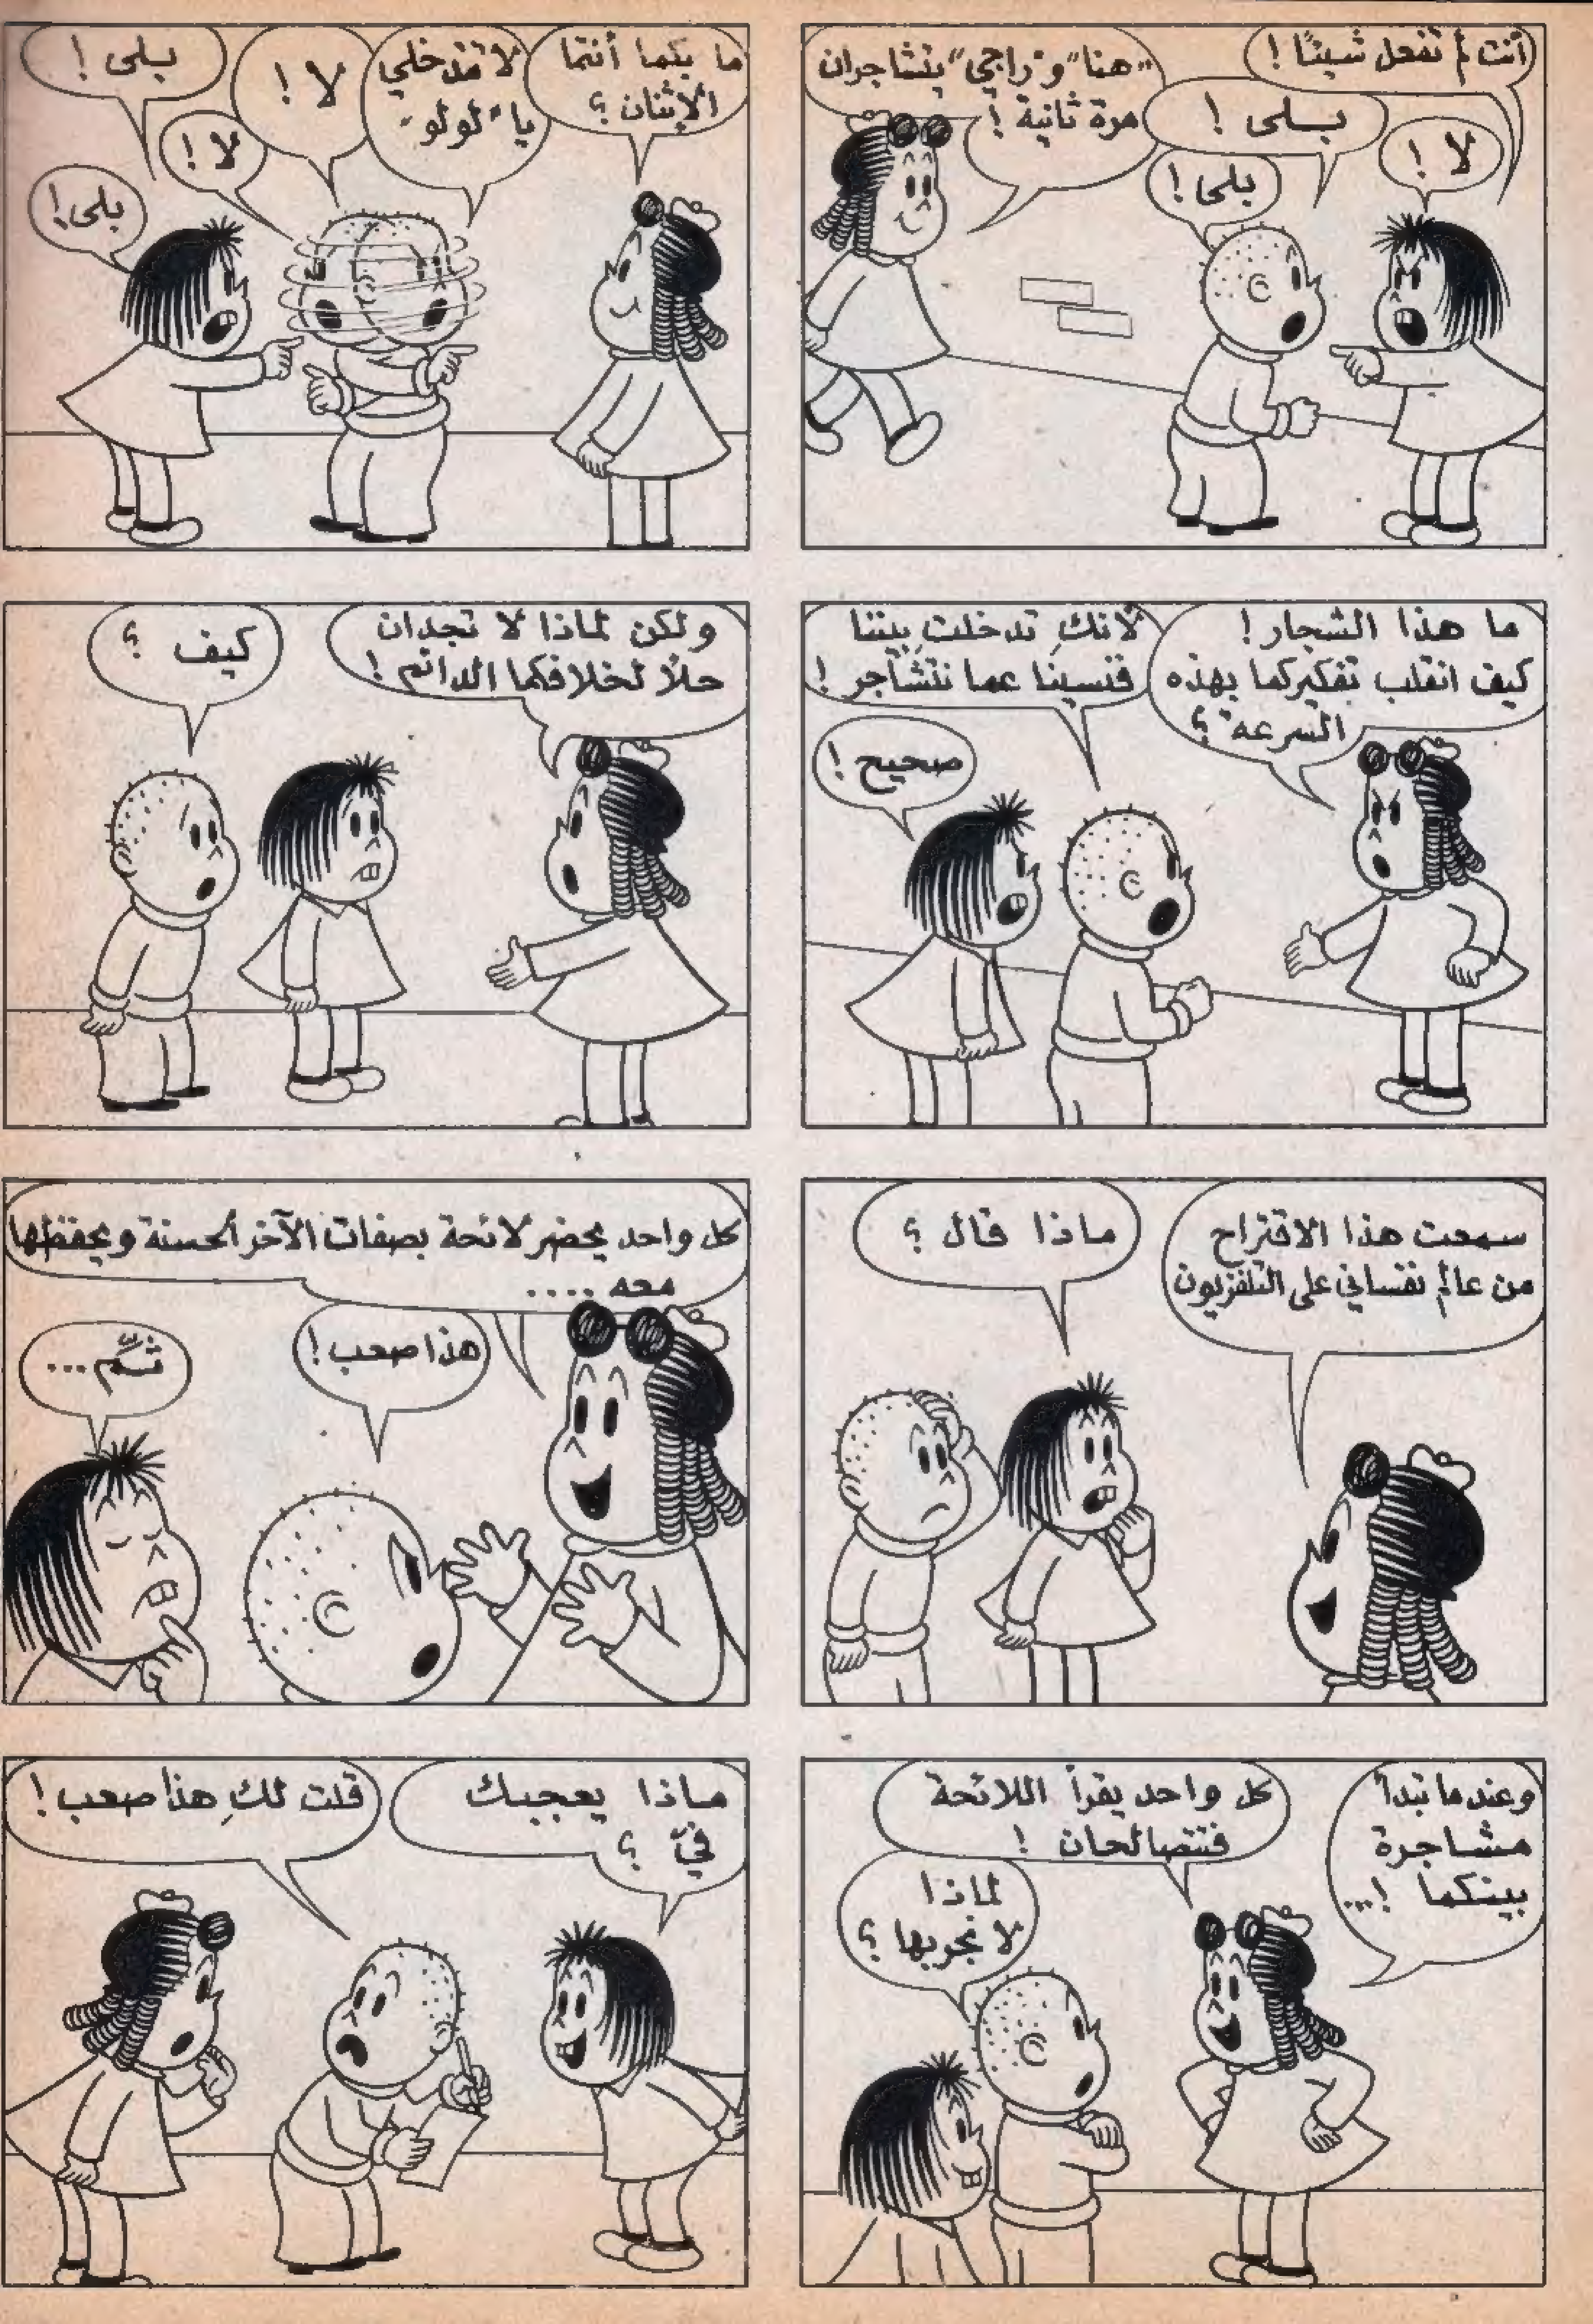 أنت لم تفعل شيئًا !
لا !
بلى !
بلى !
"هنا" و"راجي" يتشاجران
مرة ثانية !
ما بكما أنتما
الإثنان ؟
لا تتدخلي
يا "لولو"
لا !
لا !
بلى !
بلى !
ما هذا الشجار !
كيف انقلب تفكيركما بهذه
السرعة ؟
لأنكِ تدخلتِ بيننا
فنسينا عما نتشاجر !
صحيح !
ولكن لماذا لا تجدان
حلاً لخلافكما الدائم !
كيف ؟
سمعت هذا الاقتراح
من عالم نفساني على التلفزيون
ماذا قال ؟
كل واحد يحضر لائحة بصفات الآخر الحسنة ويحفظها
معه ....
هذا صعب !
ثمّ ...
وعندما تبدأ
مشاجرة
بينكما !...
كل واحد يقرأ اللائحة
فتتصالحان !
لماذا
لا نجربها ؟
ماذا يعجبك
فيّ ؟
قلت لكِ هذا صعب !